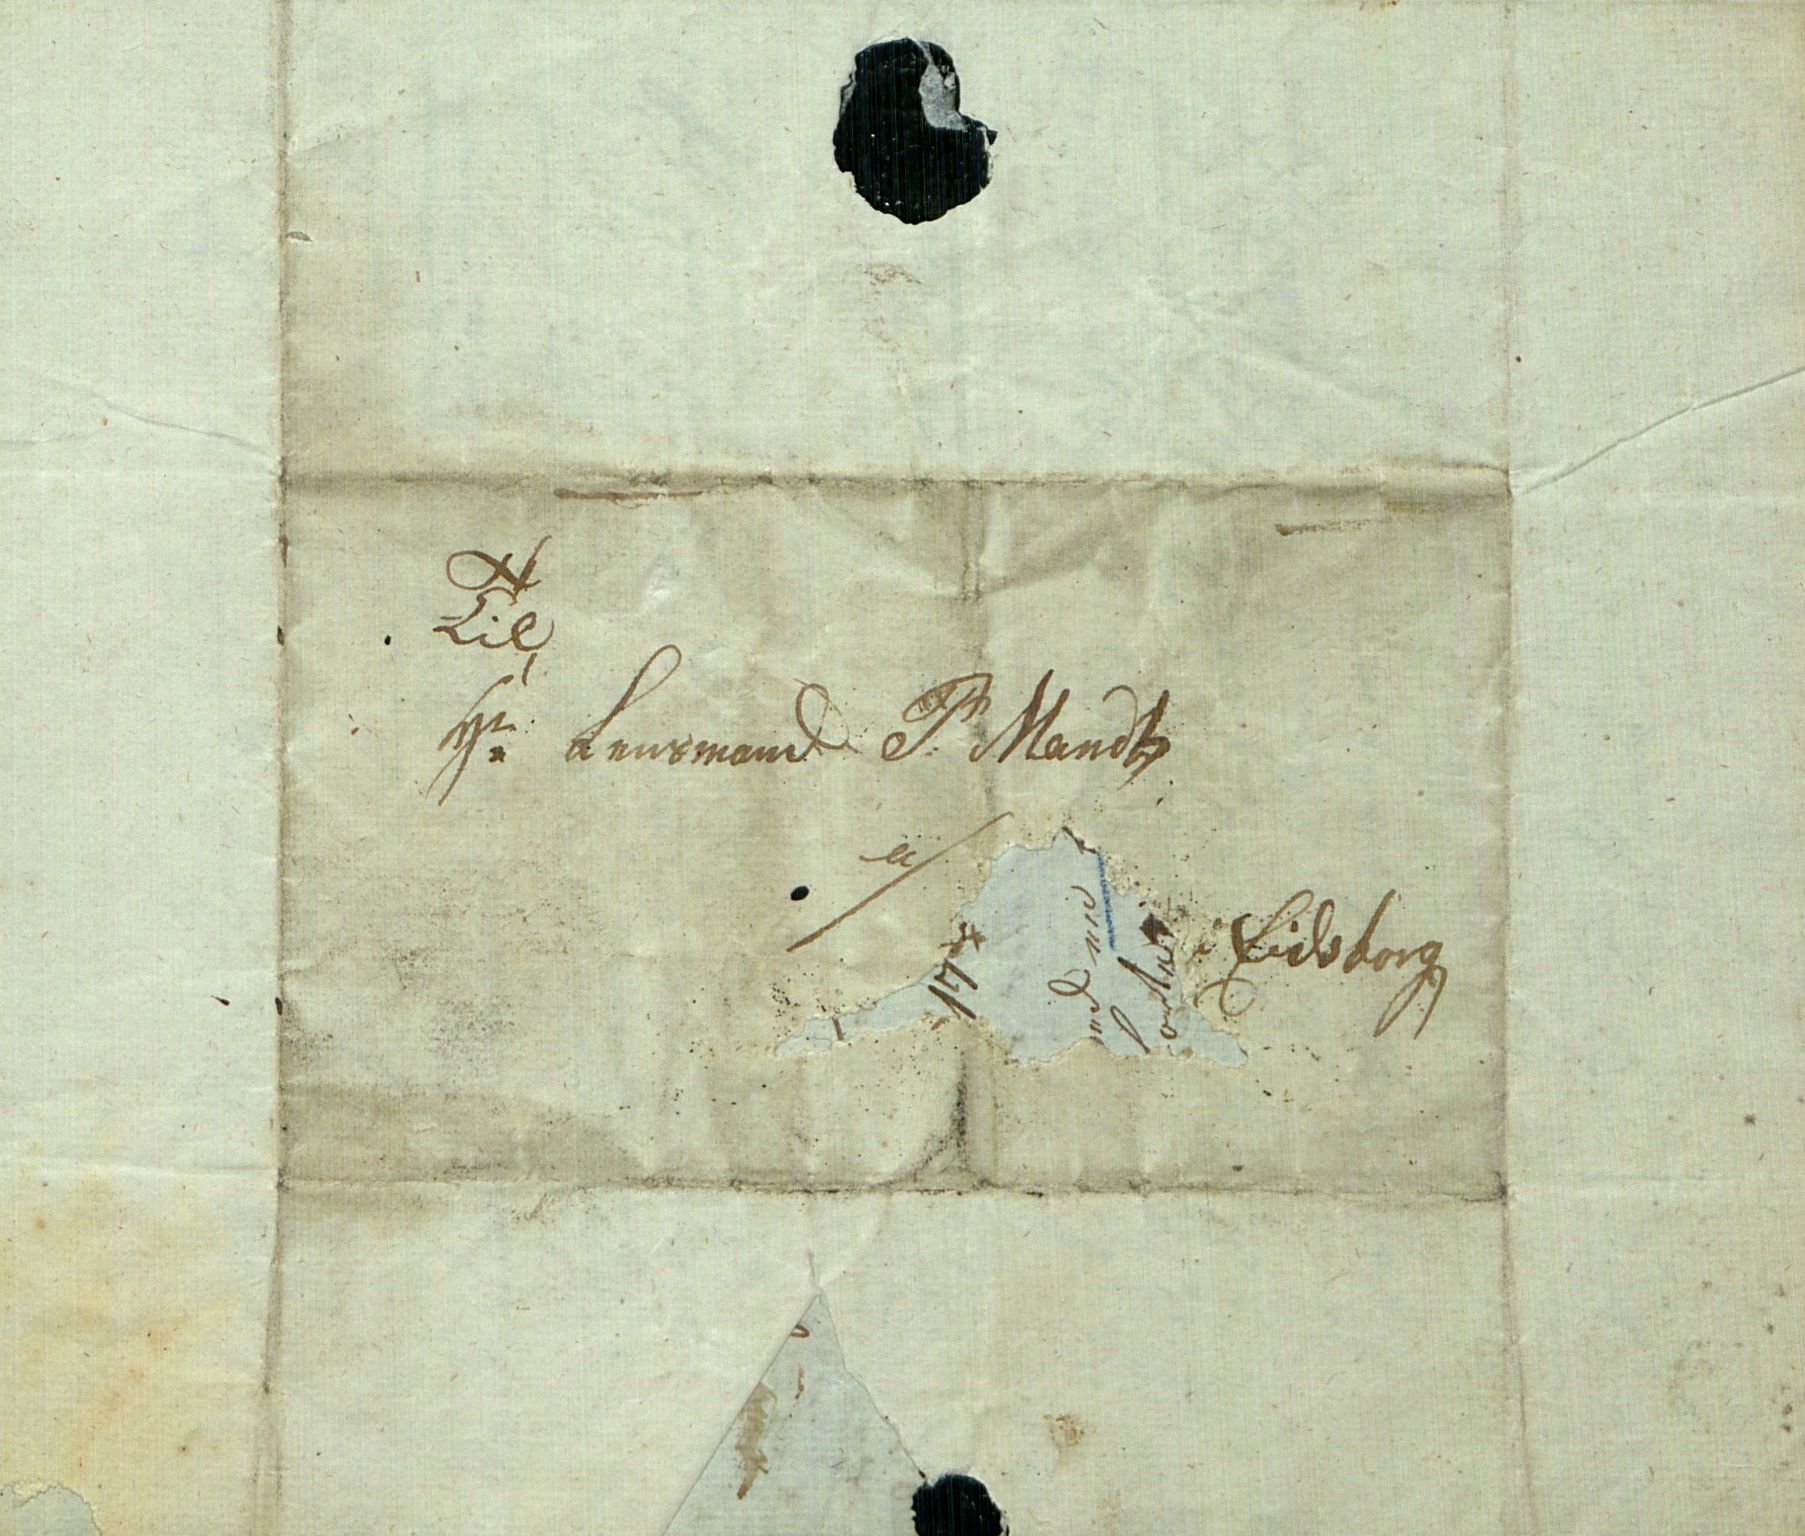 Til
Hr: Lensmand P: Mandt
a/
i Eidsborg
17